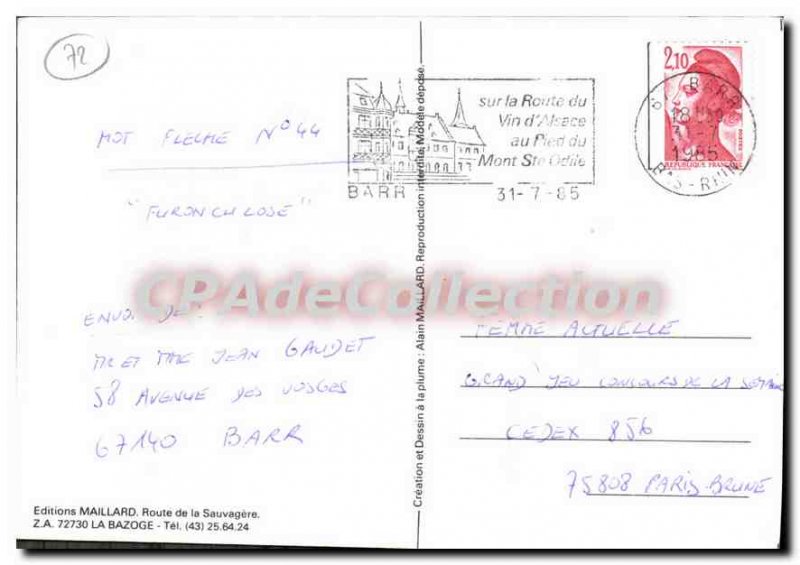 72
MOT FLECHE N° 44
"FURONCULOSE"
ENVOI DE:
MR ET MME JEAN GAUDET
58 AVENUE DES VOSGES
67140 BARR
Editions MAILLARD. Route de la Sauvagère.
Z.A. 72730 LA BAZOGE - Tél. (43) 25.64.24
Création et Dessin à la plume : Alain MAILLARD. Reproduction interdite. Modèle déposé.
sur la Route du
Vin d'Alsace
au Pied du
Mont Ste Odile
BARR 31-7-85
2,10
REPUBLIQUE FRANÇAISE
67 BARR
18 H
31-7
1985
BAS-RHIN
FEMME ACTUELLE
GRAND JEU CONCOURS DE LA SEMAINE
CEDEX 856
75808 PARIS BRUNE
CPAdeCollection